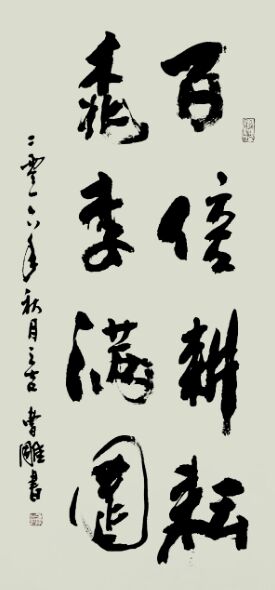 百倍耕耘
桃李满園
二零一六年秋月之吉 曹雕書